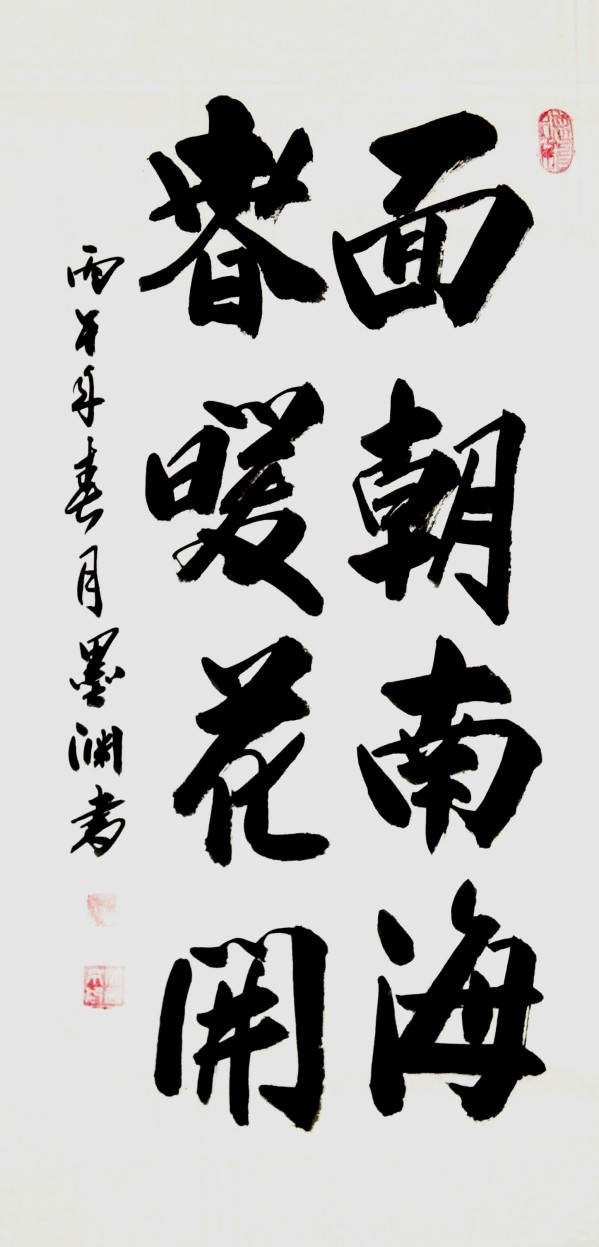 面朝南海
春暖花開
丙午年春月墨渊書